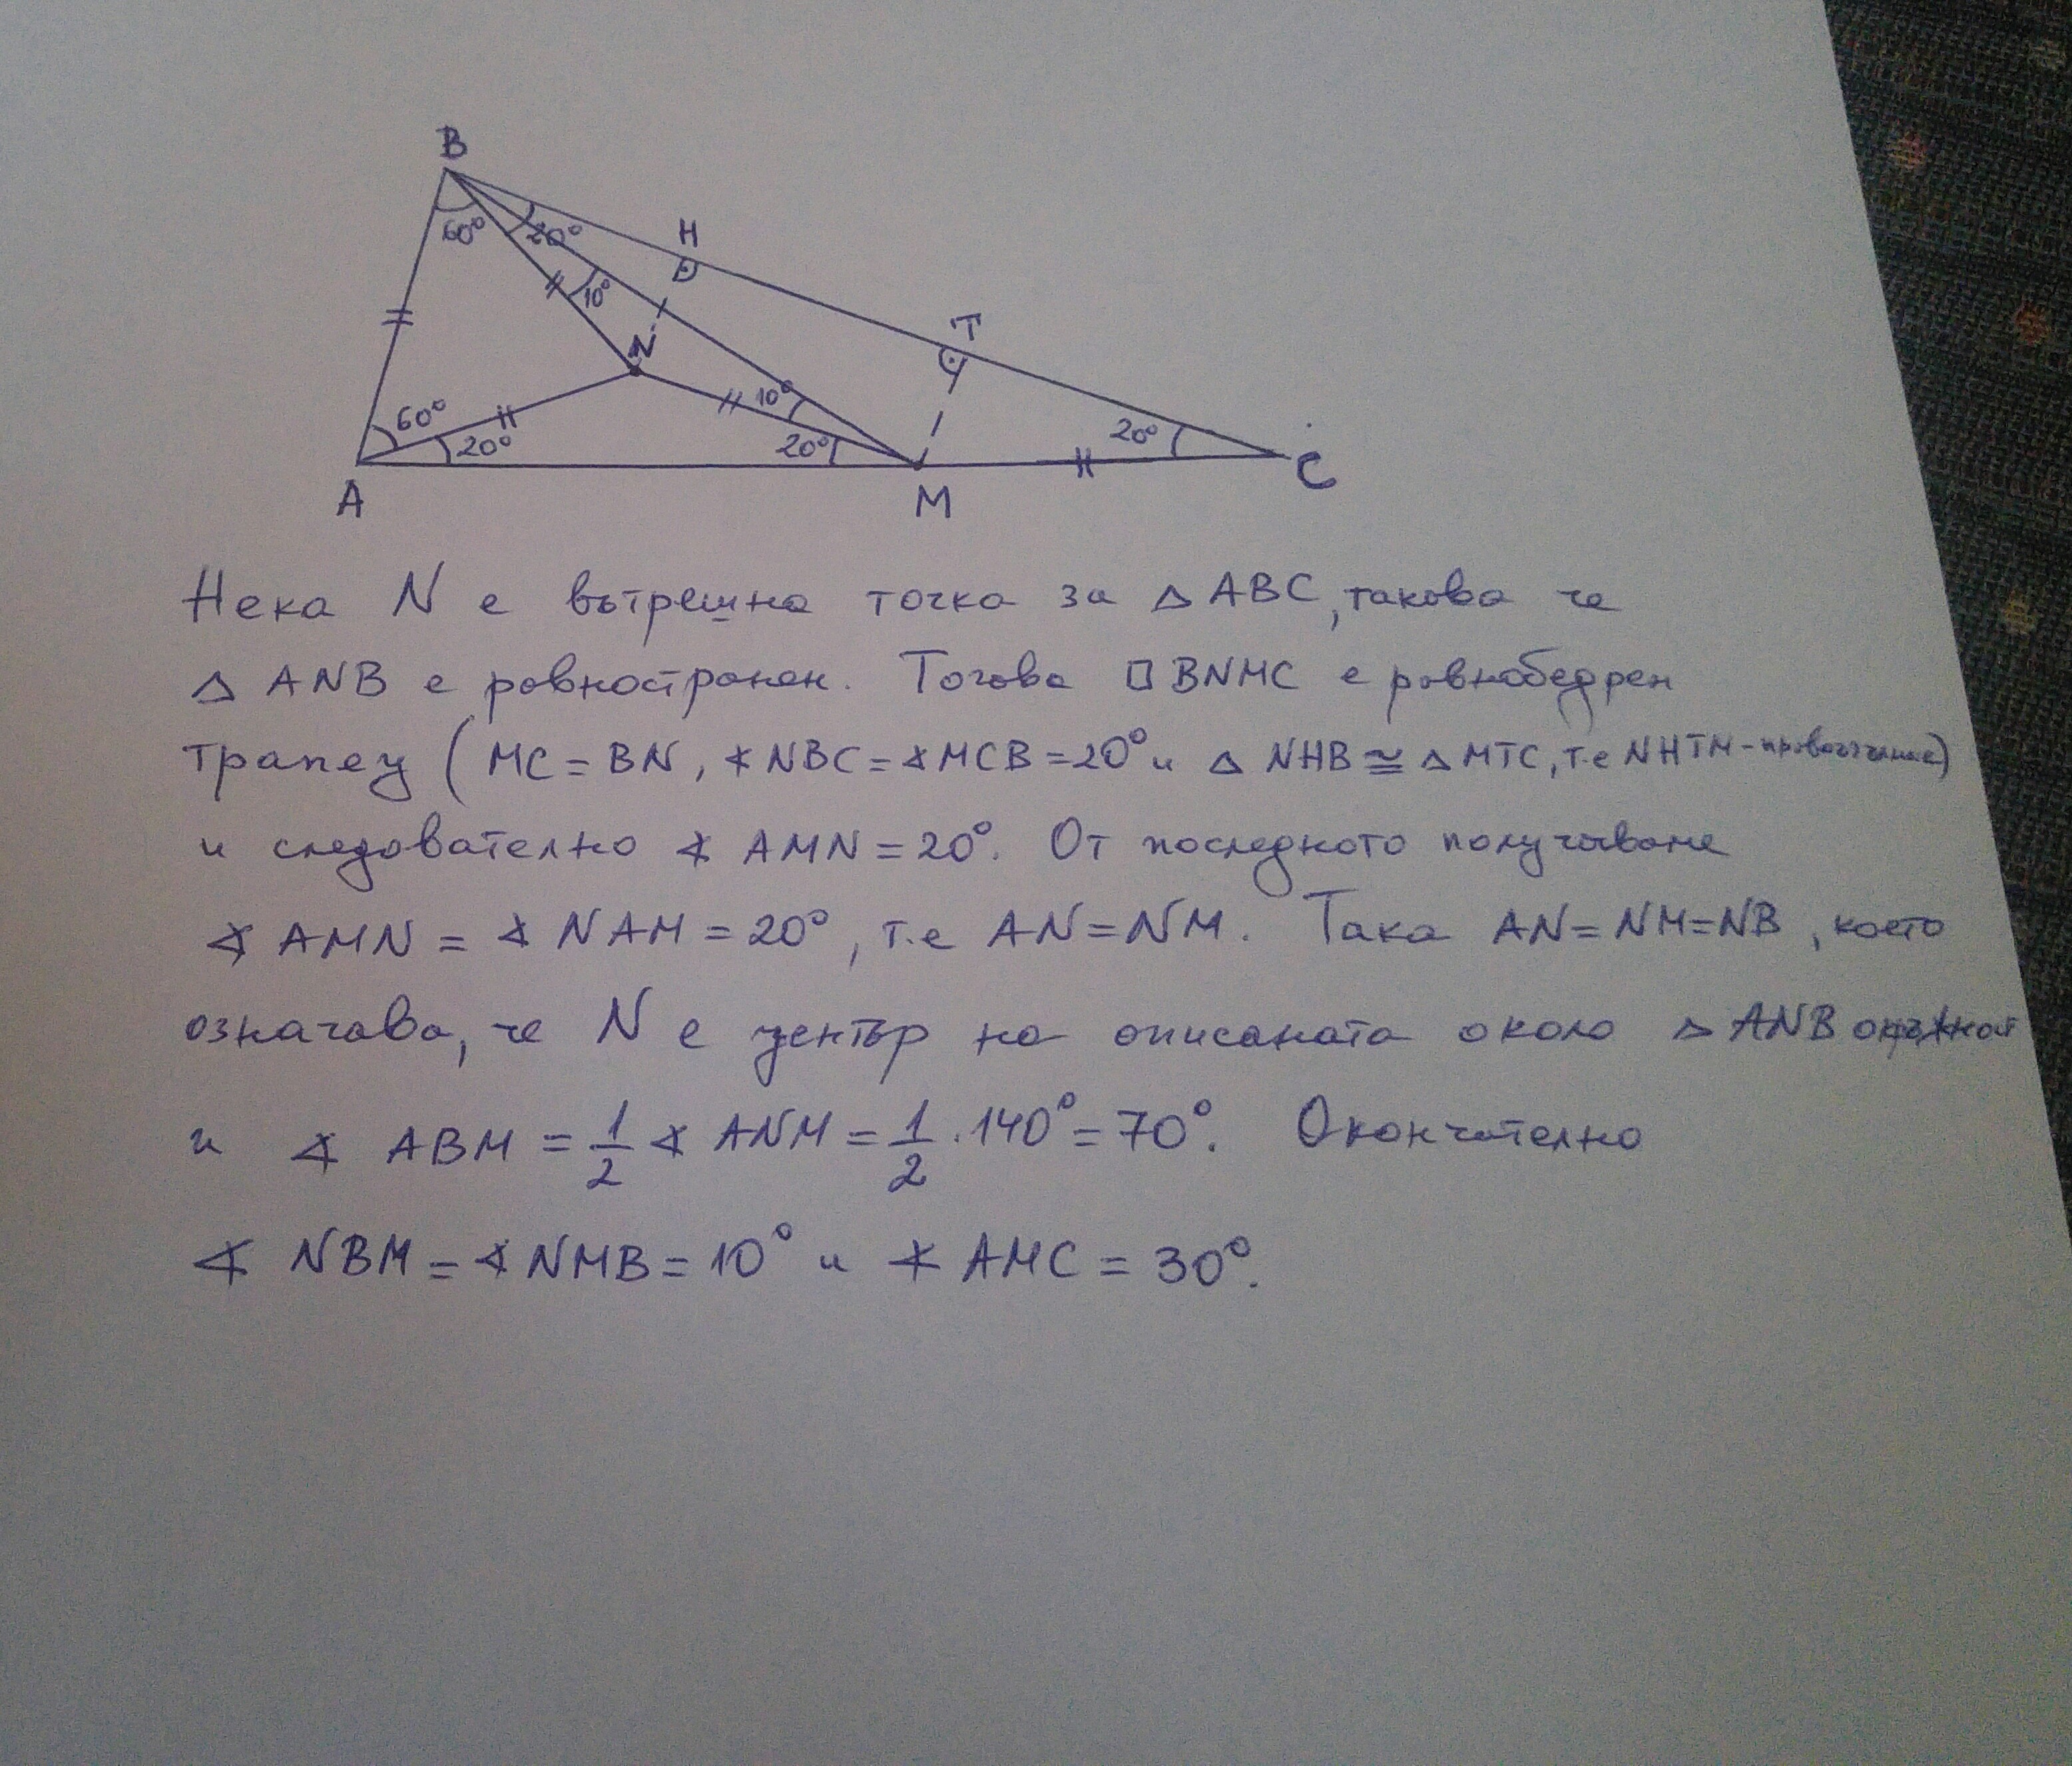 B
H
60°
20°
10°
T
N
10°
60°
20°
20°
20°
A
M
C
Нека N е вътрешна точка за △ ABC, такава че
△ ANB е равностранен. Тогава □ BNMC е равнобедрен
трапец ( MC = BN, ∢ NBC = ∢ MCB = 20° и △ NHB ≅ △ MTC, т.е NHTM - правоъгълник)
и следователно ∢ AMN = 20°. От последното получаваме
∢ AMN = ∢ NAM = 20°, т.е AN = NM. Така AN = NM = NB, което
означава, че N е център на описаната около △ ANB
и ∢ ABM = 1/2 ∢ ANM = 1/2 . 140° = 70°. Окончателно
∢ NBM = ∢ NMB = 10° и ∢ AMC = 30°.